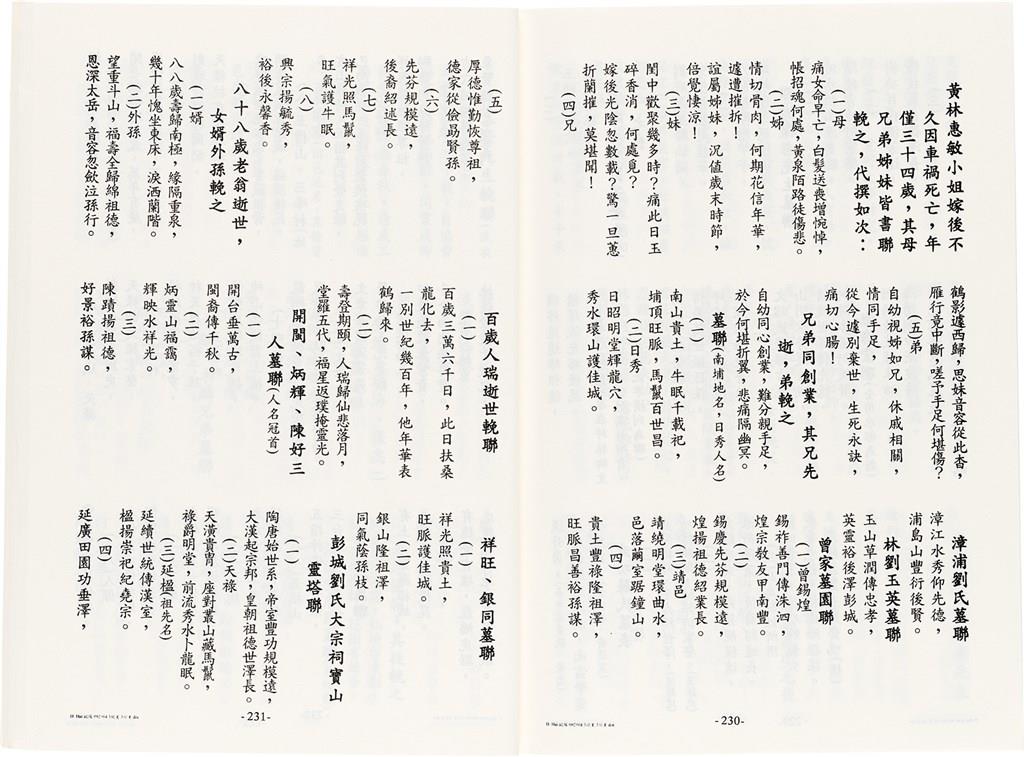 黃林惠敏小姐嫁後不
久因車禍死亡，年
僅三十四歲，其母
兄弟姊妹皆書聯
輓之，代撰如次：
(一)母
痛女命早亡，白髮送喪增惋悼，
帳招魂何處，黃泉陌路徒傷悲。
(二)姊
情切骨肉，何期花信年華，
遽遭摧折！
誼屬姊妹，沉值歲末時節，
倍覺悽涼！
(三)妹
閨中歡聚幾多時？痛此日玉
碎香消，何處覓？
嫁後光陰忽數載？驚一旦蕙
折蘭摧，莫堪聞！
(四)兄
鶴影遽西歸，思妹音容從此杳，
雁行竟中斷，嗟予手足何堪傷？
(五)弟
自幼視姊如兄，休戚相關，
情同手足，
從今遽別棄世，生死永訣，
痛切心腸！
兄弟同創業，其兄先
逝，弟輓之
自幼同心創業，難分親手足，
於今何堪折翼，悲痛隔幽冥。
墓聯(南埔地名，日秀人名)
(一)
南山貴土，牛眠千載祀，
埔頂旺脈，馬鬣百世昌。
(二)日秀
日昭明堂輝龍穴，
秀水環山護佳城。
漳浦劉氏墓聯
漳江水秀仰先德，
浦島山豐衍後賢。
林劉玉英墓聯
玉山草潤傳忠孝，
英靈裕後澤彭城。
曾家墓園聯
(一)曾錫煌
錫祚善門傳洙泗，
煌宗敎友甲南豐。
(二)
錫慶先芬規模遠，
煌揚祖德紹業長。
(三)靖邑
靖繞明堂環曲水，
邑落薾室踞鐘山。
(四)
貴土豐祿隆祖澤，
旺脈昌善裕孫謀。
-230-
(五)
厚德惟勤恢尊祖，
德家從儉勗賢孫。
(六)
先芬規模遠，
後裔紹述長。
(七)
祥光照馬鬣，
旺氣護牛眠。
(八)
興宗揚毓秀，
裕後永馨香。
八十八歲老翁逝世，
女婿外孫輓之
(一)婿
八八歲壽歸南極，緣隔重泉，
幾十年愧坐東床，淚洒蘭階。
(二)外孫
望重斗山，福壽全歸綿祖德，
恩深太岳，音容忽斂泣孫行。
百歲人瑞逝世輓聯
(一)
百歲三萬六千日，此日扶桑
龍化去，
一別世紀幾百年，他年華表
鶴歸來。
(二)
壽登期頤，人瑞歸仙悲落月，
堂羅五代，福星返璞掩靈光。
開閩、炳輝、陳好三
人墓聯(人名冠首)
(一)
開台垂萬古，
閩裔傳千秋。
(二)
炳靈山福靄，
輝映水祥光。
(三)
陳蹟揚祖德，
好景裕孫謀。
祥旺、銀同墓聯
(一)
祥光照貴土，
旺脈護佳城。
(二)
銀山隆祖澤，
同氣蔭孫枝。
彭城劉氏大宗祠寶山
靈塔聯
(一)
陶唐始世系，帝室豐功規模遠，
大漢起宗邦，皇朝祖德世澤長。
(二)天祿
天潢貴冑，座對叢山藏馬鬣，
祿爵明堂，前流秀水卜龍眠。
(三)(延楹祖先名)
延續世統傳漢室，
楹揚崇祀紀堯宗。
(四)
延廣田園功垂澤，
-231-